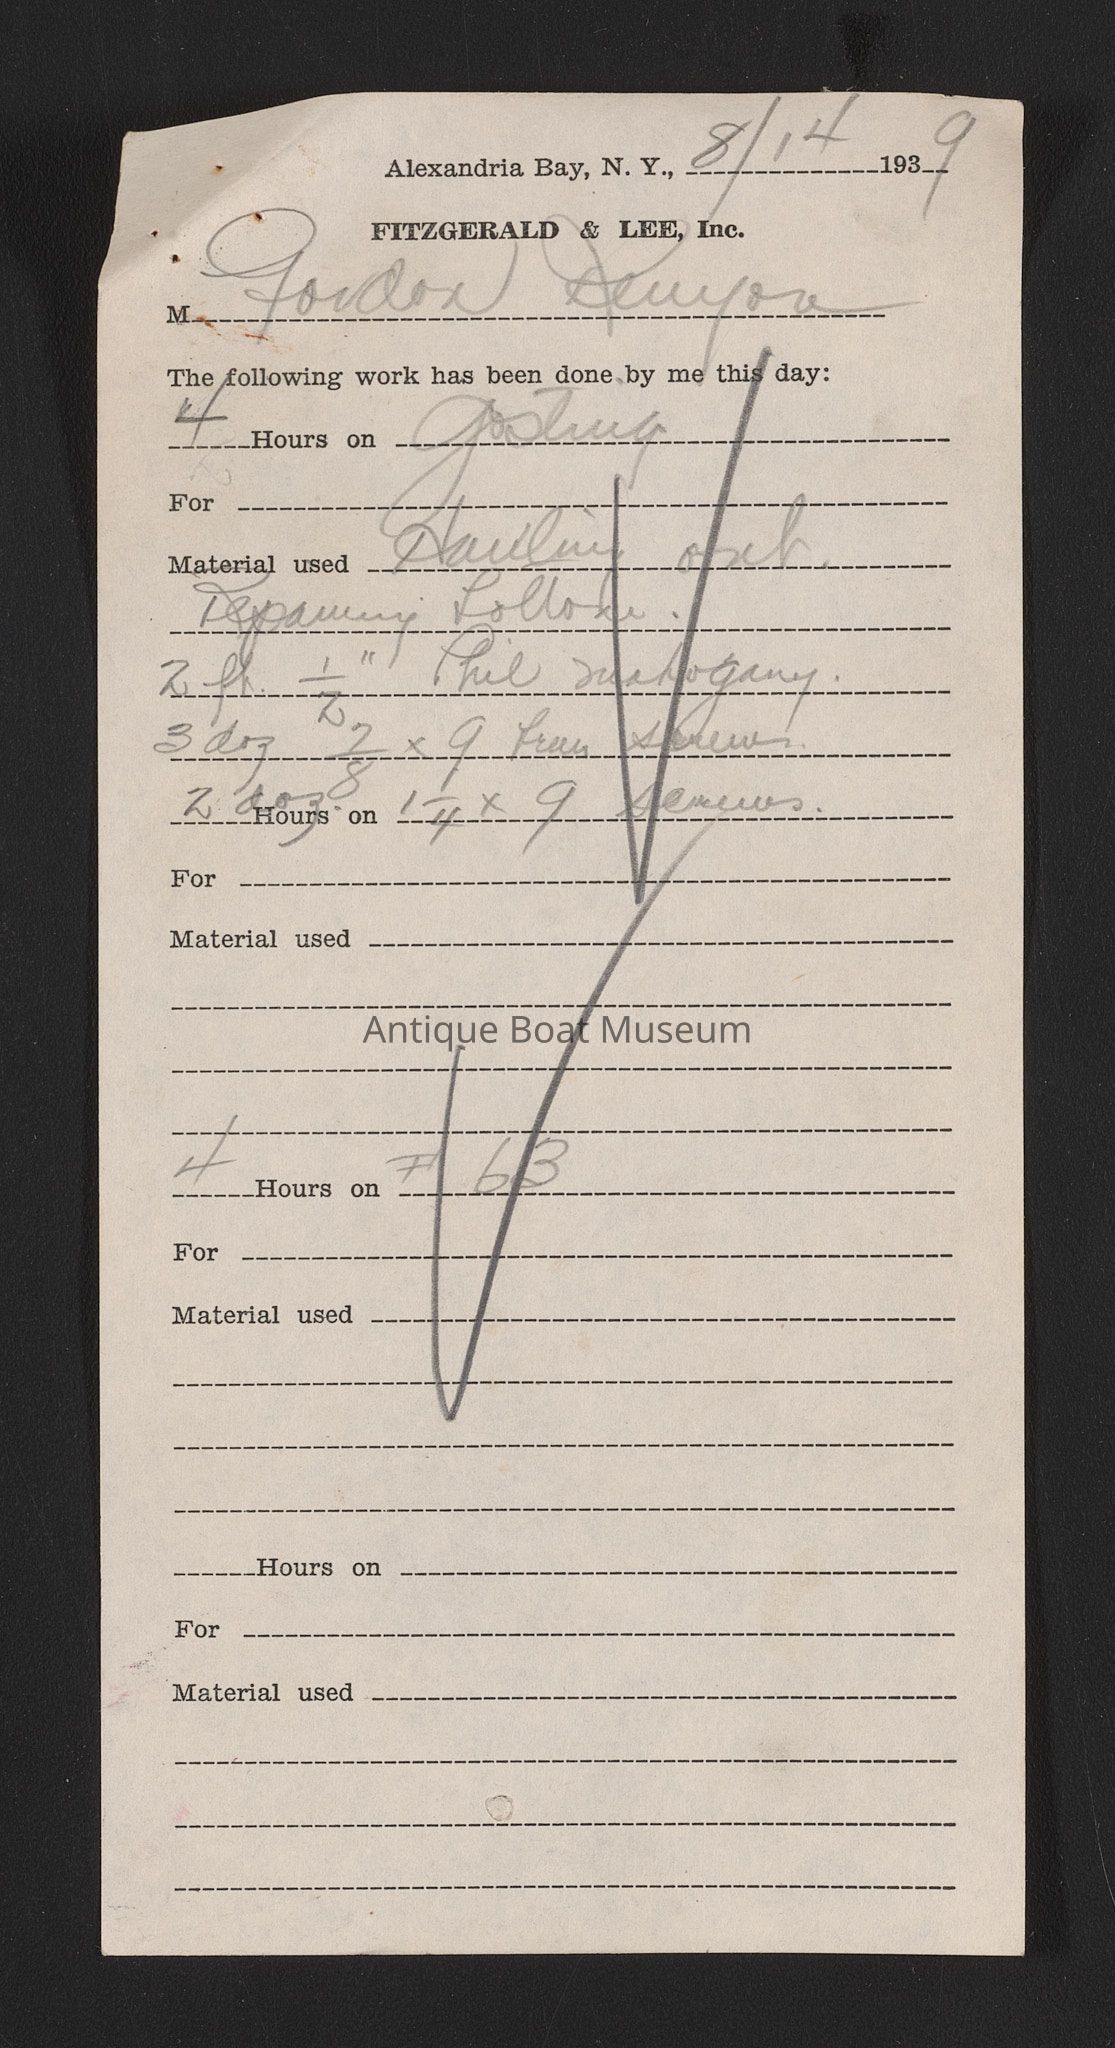 Alexandria Bay, N. Y., 8/14 1939
FITZGERALD & LEE, Inc.
M Gordon Kenyon
The following work has been done by me this day:
4 Hours on
For
Material used Hauling out.
Repairing bottom.
2 ft. 1/2" Phil mahogany.
3 doz 7/8 x 9 screws.
2 doz Hours on 1 1/4 x 9 screws.
For
Material used
Antique Boat Museum
4 Hours on # 63
For
Material used
Hours on
For
Material used